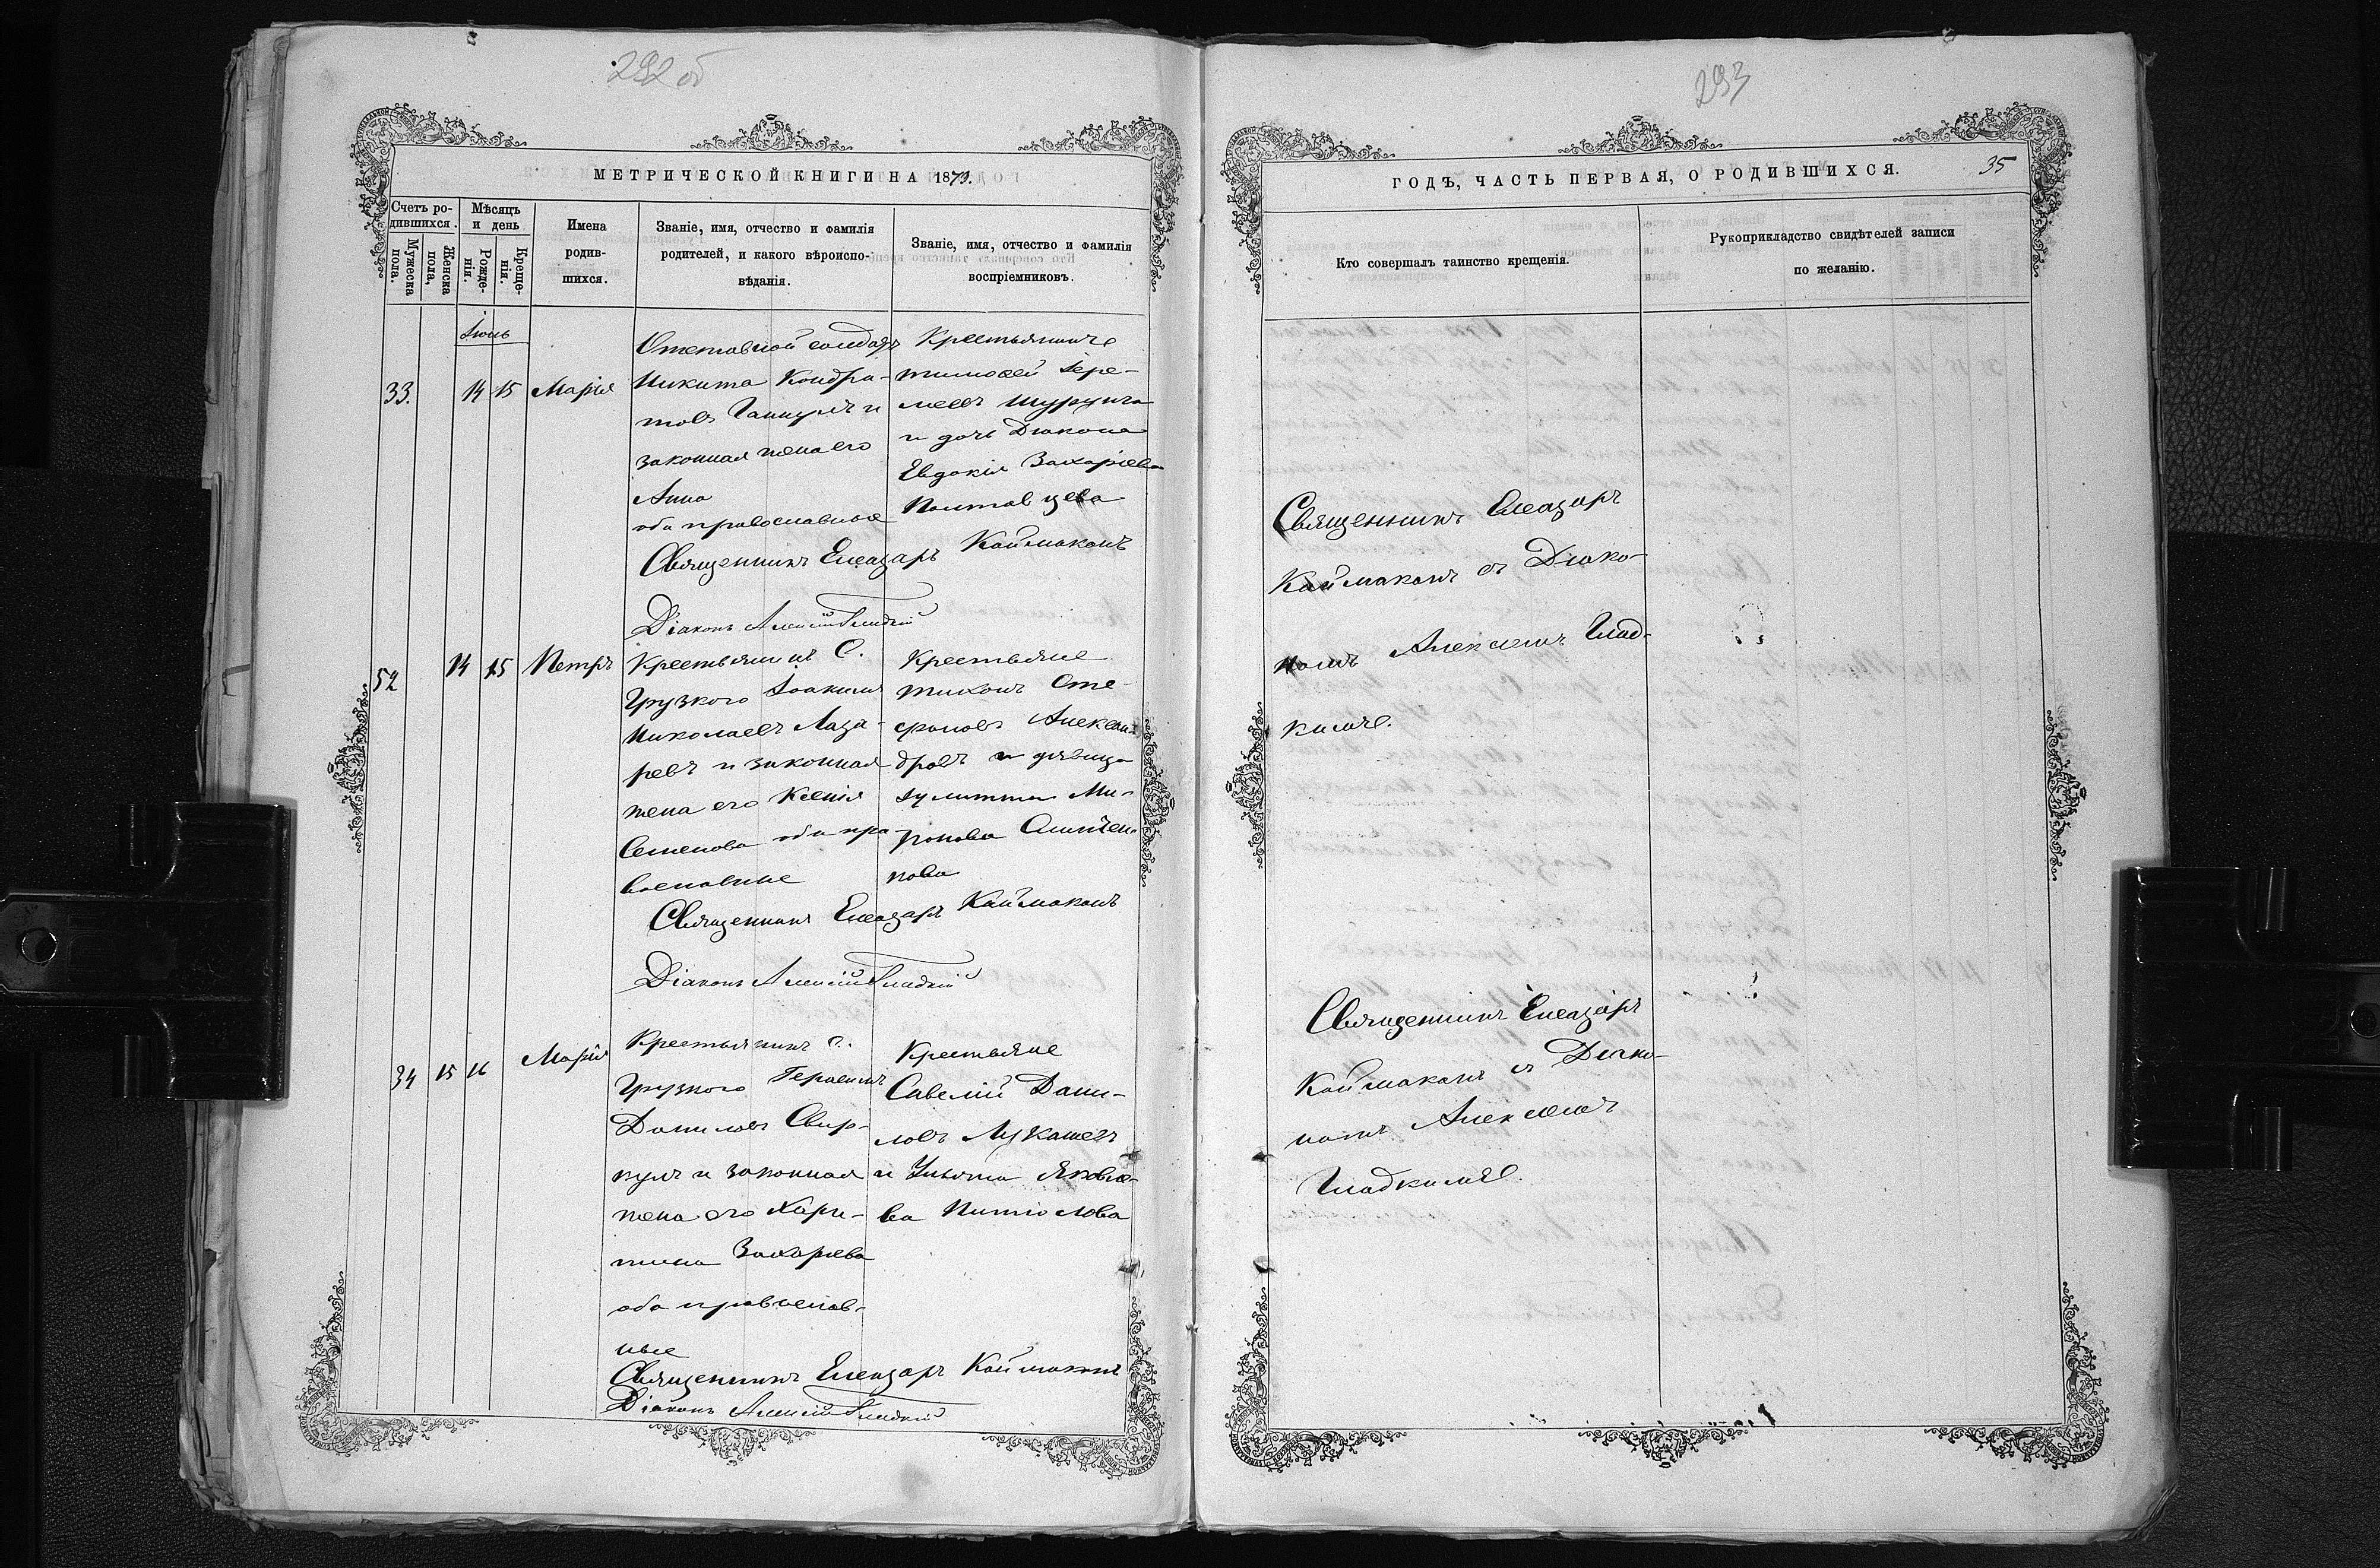 292 об
МЕТРИЧЕСКОЙ КНИГИ НА 1873.
Счетъ родившихся.
Мужеска пола.
Женска пола.
Мѣсяцъ и день
Рожденія.
Крещенія.
Имена родившихся.
Званіе, имя, отчество и фамилія родителей, и какого вѣроисповѣданія.
Званіе, имя, отчество и фамилія воспріемниковъ.
Іюль
33. 14 15 Марія
Отставной солдатъ
Никита Кондра-
товъ и
законная жена его
Анна
оба православные
Крестьянинъ
Тимофей Іере-
меевъ
и дочь Диакона
Евдокія Захаріева
Полтавцева
Священникъ Елеазаръ Каймаканъ
Діаконъ Алексій Гладкій
52 14 15 Петръ
Крестьянинъ С.
Грузкого Іоакимъ
Николаевъ Лаза-
ревъ и законная
жена его Ксенія
Семенова оба пра-
вославные
Крестьяне
Тихонъ
Алексан-
дровъ и дѣвица
Іулитта Ми-
ронова
нова
Священникъ Елеазаръ Каймаканъ
Діаконъ Алексій Гладкій
34 15 16 Марія
Крестьянинъ с.
Грузкого Герасимъ
Даниловъ Свир-
кунъ и законная
жена его Хари-
тина Захарьева
оба православ-
ные
Крестьяне
Савелій Дани-
ловъ Лукашевъ
и Ульяна Яковле-
ва
Священникъ Елеазаръ Каймаканъ
Діаконъ Алексій Гладкій
293
ГОДЪ, ЧАСТЬ ПЕРВАЯ, О РОДИВШИХСЯ.
35
Кто совершалъ таинство крещенія.
Рукоприкладство свидѣтелей записи
по желанію.
Священникъ Елеазаръ
Каймаканъ съ Диако-
номъ Алексіемъ Глад-
кимъ.
Священникъ Елеазаръ
Каймаканъ съ Диако-
номъ Алексіемъ
Гладкимъ.